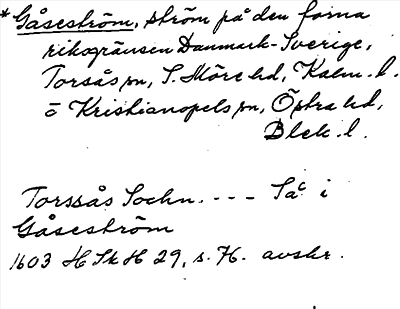 * Gåseström, ström på den forna
riksgränsen Danmark-Sverige,
Torsås sn, S. Möre hd, Kalm. l.
o Kristianopels sn, Östra hd,
Blek. l.
Torssås Sochn. --- Så i
Gåseström
1603 H Sk H 29, s. 76. avskr.